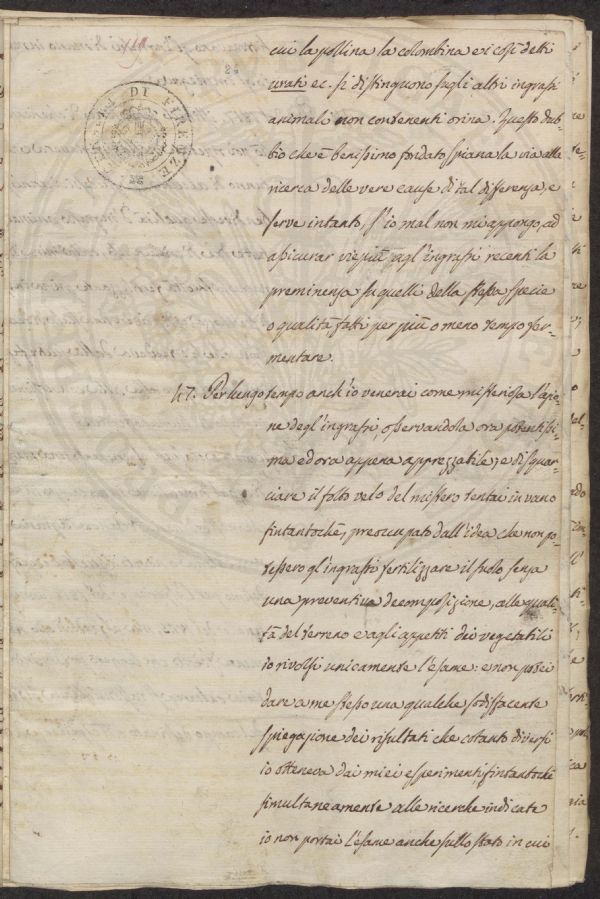 cui la pollina la colombina e i così detti
urati ec. si distinguono sugli altri ingrassi
animali non contenenti orina. Questo dub-
bio che è benissimo fondato spiana la via alle
ricerca delle vere cause di tal differenza, e
serve intanto, s'io mal non mi appongo, ad
assicurar viepiù agl'ingrassi recenti la
preminenza su quelli della stessa specie
o qualità fatti per più o meno tempo fer-
mentare.
47. Per lungo tempo anch'io venerai come misteriosa l'azio-
ne degl'ingrassi, osservandola ora potentissi-
ma ed ora appena apprezzabile; e di squar-
ciare il folto velo del mistero tentai invano
fintantochè, preoccupato dall'idea che non po-
tessero gl'ingrassi fertilizzare il suolo senza
una preventiva decomposizione, alle quali-
tà del terreno e agli appetiti dei vegetabili
io rivolsi unicamente l'esame: e non potei
dare a me stesso una qualche sodisfacente
spiegazione dei risultati che cotanto diversi
io otteneva dai miei esperimenti, fintantochè
simultaneamente alle ricerche indicate
io non portai l'esame anche sullo stato in cui
DI FIRENZE